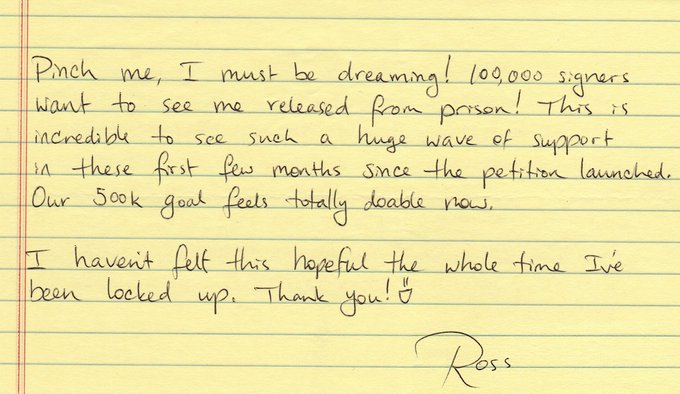 Pinch me, I must be dreaming! 100,000 signers
want to see me released from prison! This is
incredible to see such a huge wave of support
in these first few months since the petition launched.
Our 500k goal feels totally doable now.
I haven't felt this hopeful the whole time I've
been locked up. Thank you!
Ross